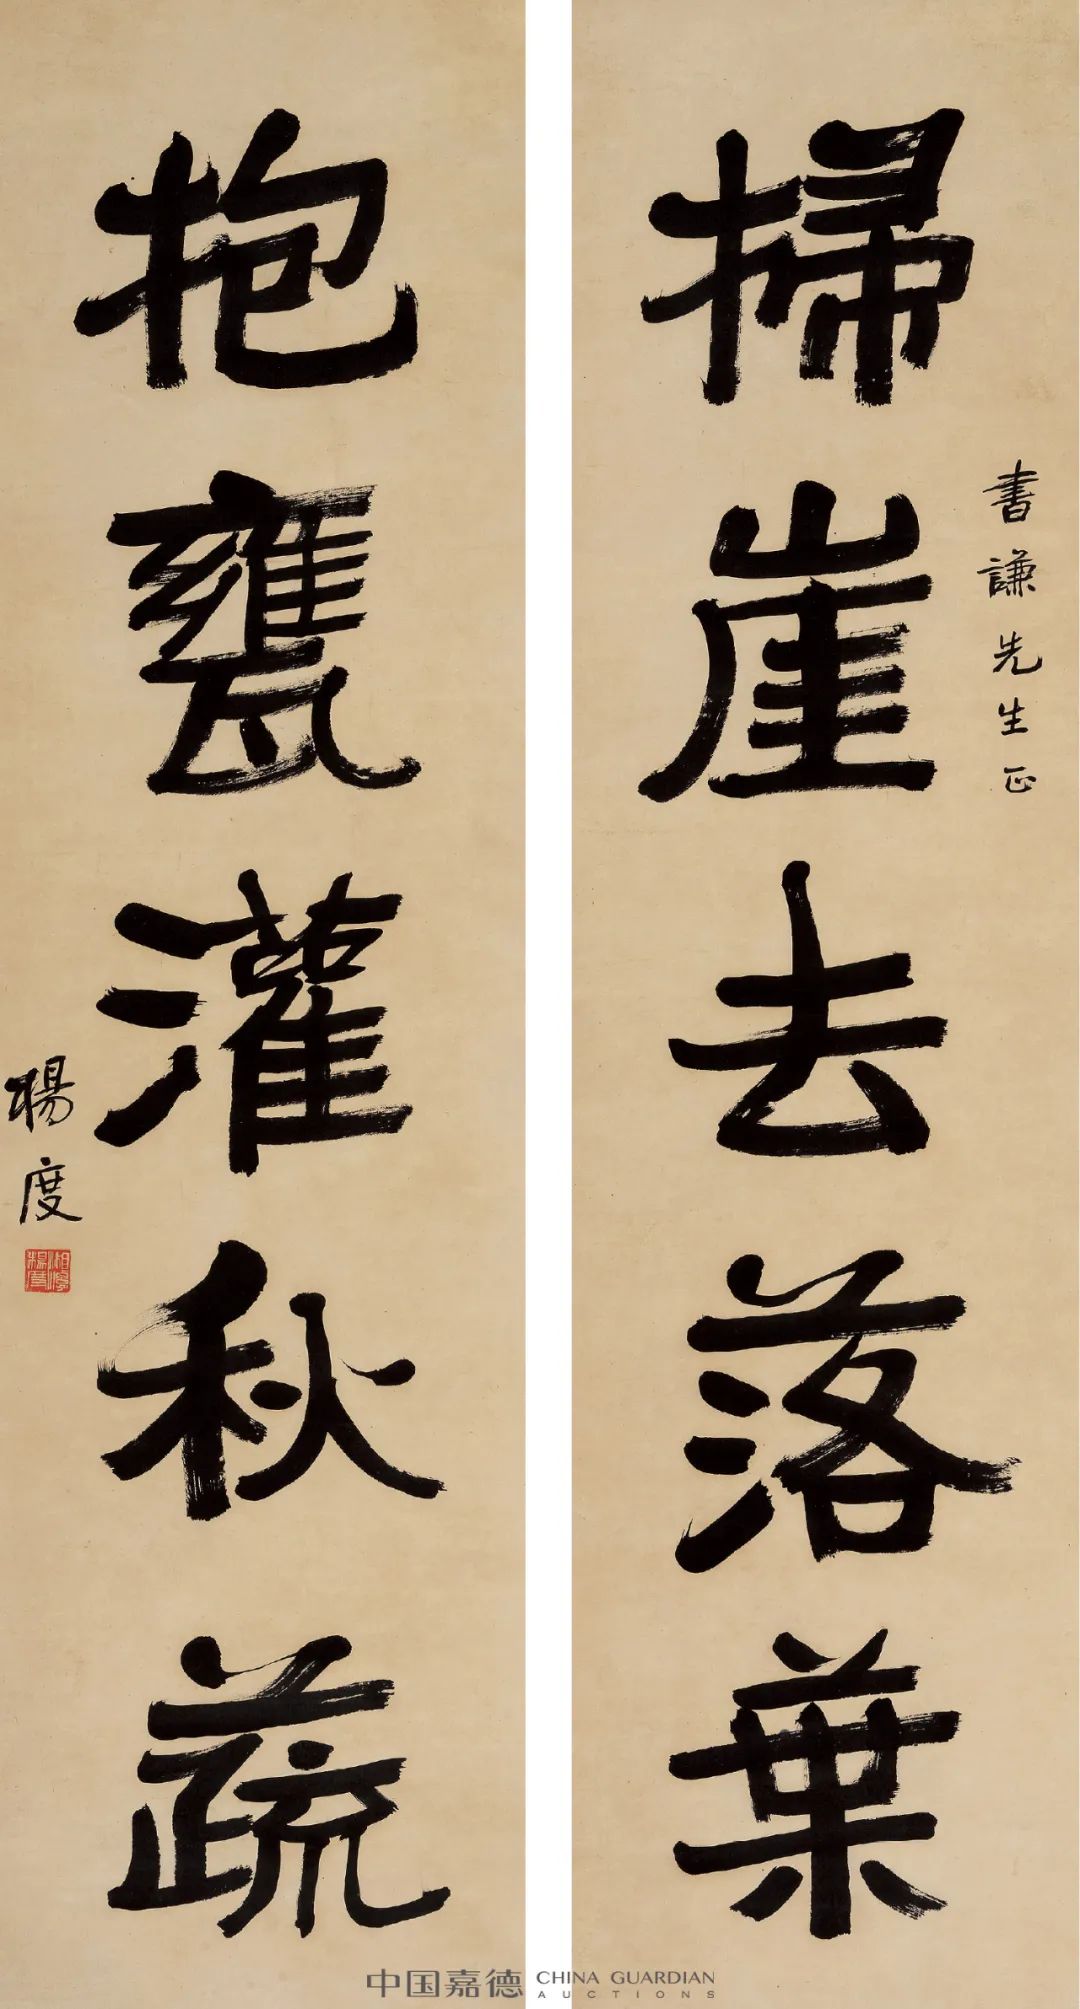 掃崖去落葉
書謙先生正
抱甕灌秋蔬
楊度
湘潭
楊度
中国嘉德 CHINA GUARDIAN
AUCTIONS